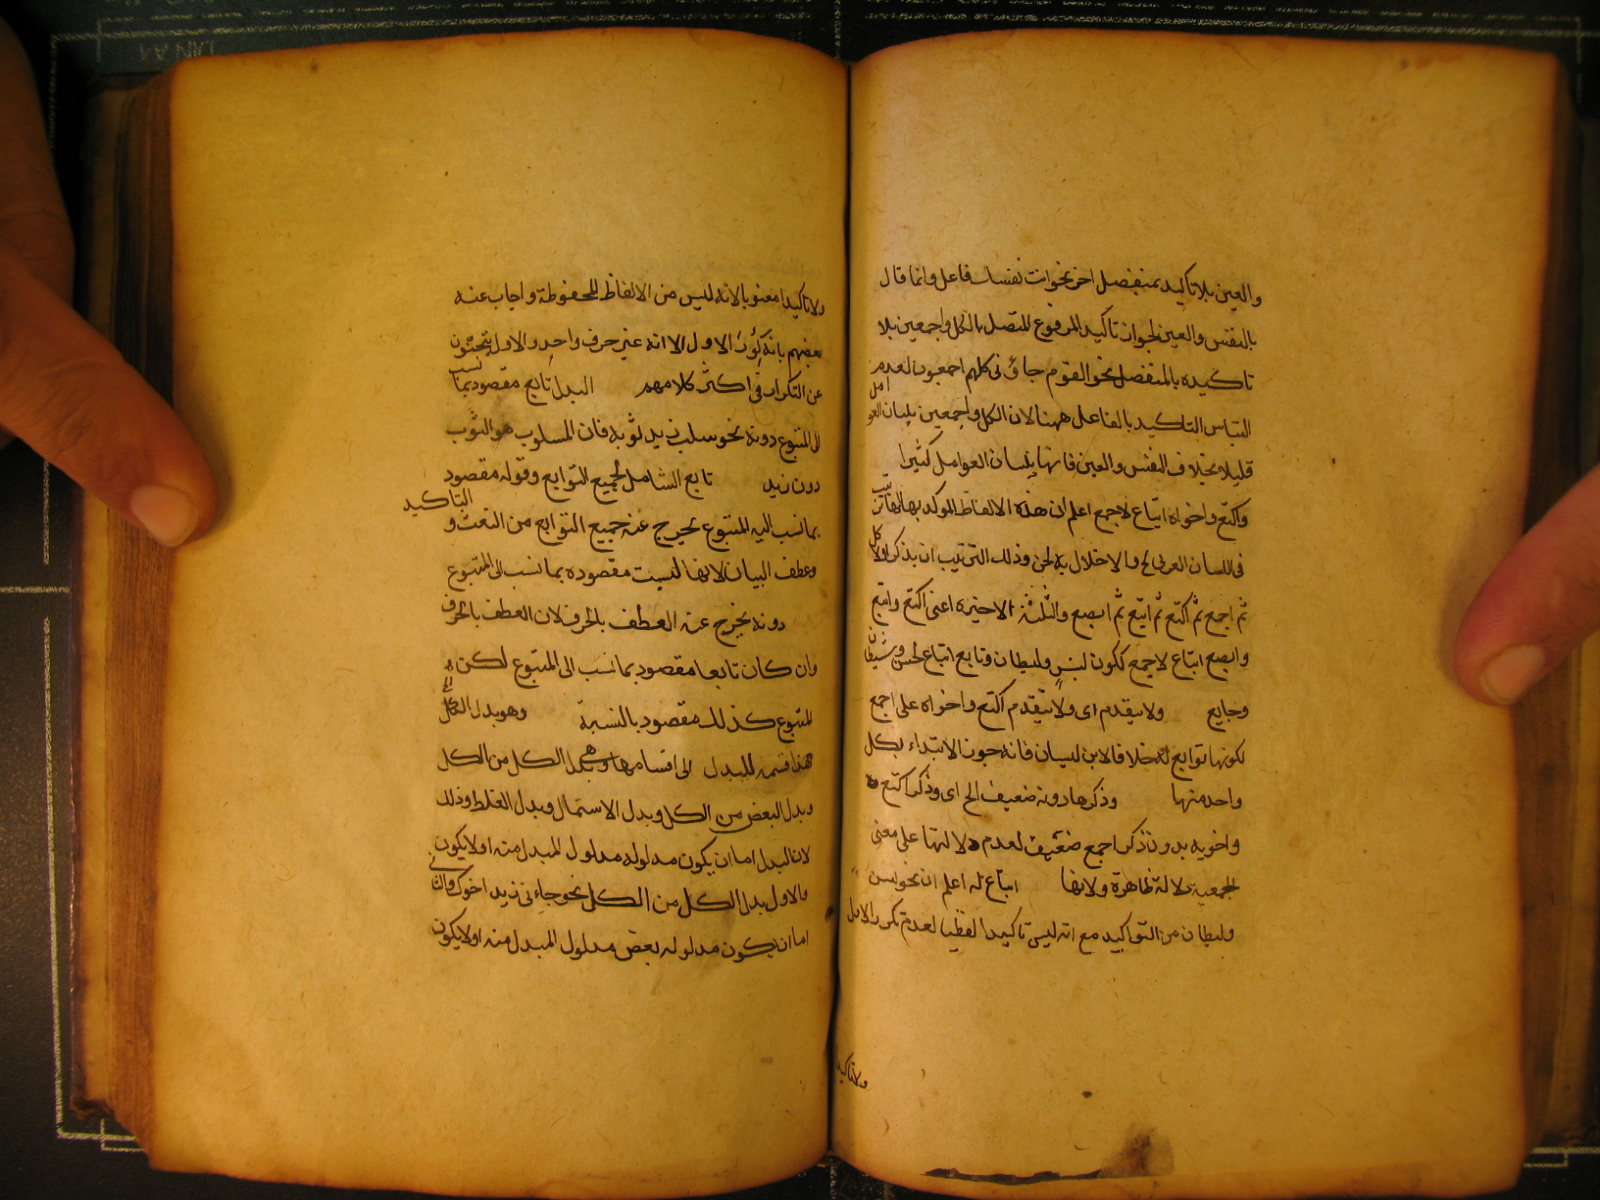 والعين بلا تاكيد بمنفصل اخر نحو انت نفسك فاعل وانما قال
بالنفس والعين لجواز تاكيد المرفوع المتصل بالكل واجمعين بلا
تاكيده بالمنفصل نحو القوم جاؤنى كلهم اجمعون لعدم
التباس التاكيد بالفاعل ههنا لان الكل واجمعين يليان العوامل
قليلا بخلاف النفس والعين فانها يليان العوامل كثيرا
واكتع واخواه اتباع لاجمع اعلم ان هذه الالفاظ الموكد بها لها ترتيب
فى اللسان العربى والاخلال به لحن وذلك الترتيب ان يذكر اولا كل
ثم اجمع ثم اكتع ثم ابتع ثم ابصع والثلثة الاخيرة اعنى اكتع وابتع
وابصع اتباع لاجمع ككون بسن وليطان ونايع اتباع لحسن وشيطان
وجايع ولا يتقدم اى ولا يتقدم اكتع واخواه على اجمع
لكونها توابع له خلافا لابن كيسان فانه جوز الابتداء بكل
واحد منها وذكرها دونه ضعيف الخ اى وذكر اكتع
واخويه بدون ذكر اجمع ضعيف لعدم دلالتها على معنى
الجمعية دلالة ظاهرة ولانها اتباع له اعلم ان نحو بسن
وليطان من التواكيد مع انه ليس تاكيدا لفظيا لعدم تكرر الاول
ولا تاكيدا
ولا تاكيدا معنويا لانه ليس من الالفاظ المحفوظة واجاب عنه
بعضهم بانه كرر الاول الا انه غير حرف واحد والاول يتجنبون
عن التكرار فى اكثر كلامهم البدل تابع مقصود بما نسب
الى المتبوع دونه نحو سلب زيد ثوبه فان المسلوب هو الثوب
دون زيد تابع الشامل لجميع التوابع وقوله مقصود
بما نسب اليه المتبوع يخرج عنه جميع التوابع من النعت والتاكيد
وعطف البيان لانها ليست مقصوده بما نسب الى المتبوع
دونه يخرج عنه العطف بالحرف لان العطف بالحرف
وان كان تابعا مقصود بما نسب الى المتبوع لكن
المتبوع كذلك مقصود بالنسبة وهو بدل الكل
هذا قسمة للبدل الى اقسامها وهى بدل الكل من الكل
وبدل البعض من الكل وبدل الاشتمال وبدل الغلط وذلك
لان البدل اما ان يكون مدلوله مدلول المبدل منه اولا يكون
والاول بدل الكل من الكل نحو جاءنى زيد اخوك والثانى
اما ان يكون مدلوله بعض مدلول المبدل منه اولا يكون